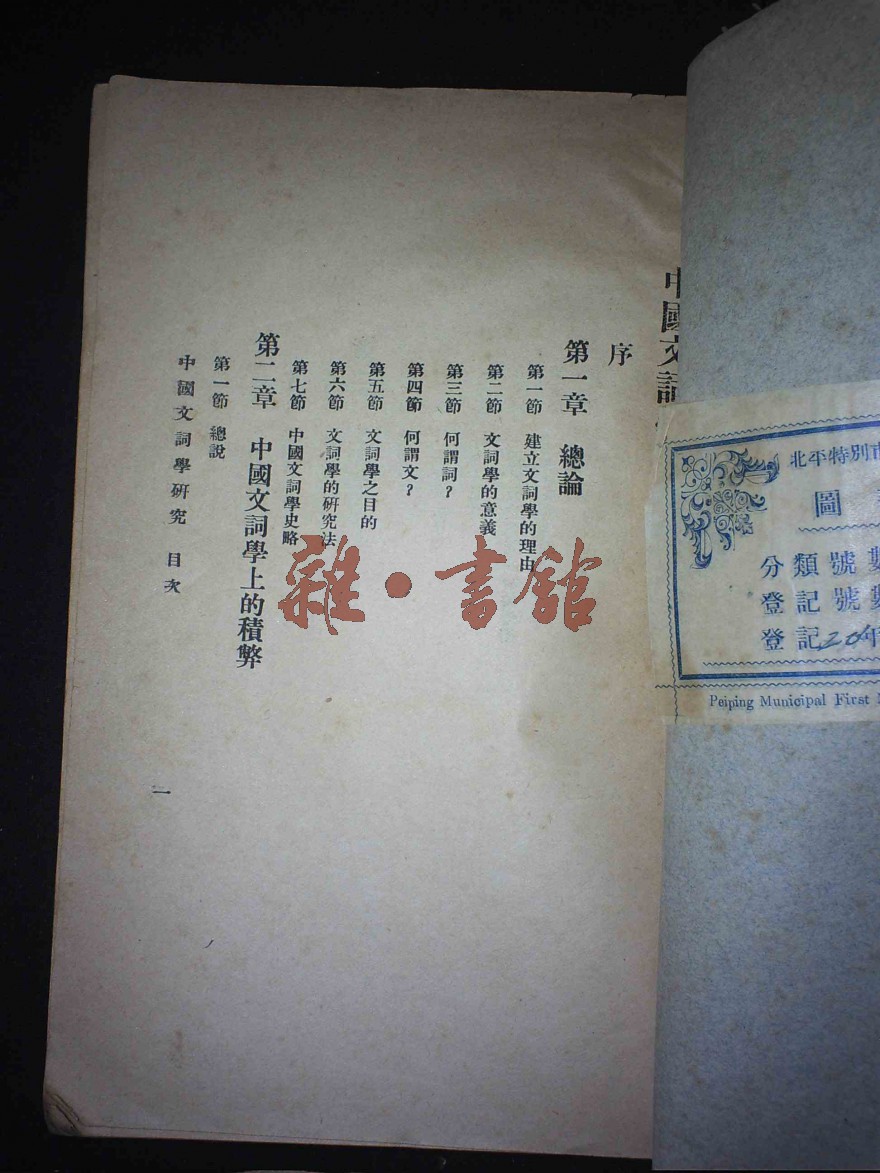 中國文詞
序
第一章　總論
第一節　建立文詞學的理由
第二節　文詞學的意義
第三節　何謂詞？
第四節　何謂文？
第五節　文詞學之目的
第六節　文詞學的研究法
第七節　中國文詞學史略
第二章　中國文詞學上的積弊
第一節　總說
中國文詞學研究　目次
一
雜·書館
北平特別市
圖
分類號數
登記號數
登記20年
Peiping Municipal First